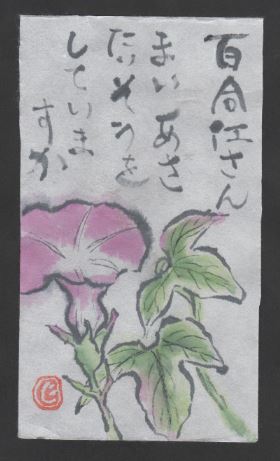 百合江さん
まい あさ
たいそうを
していま
すか